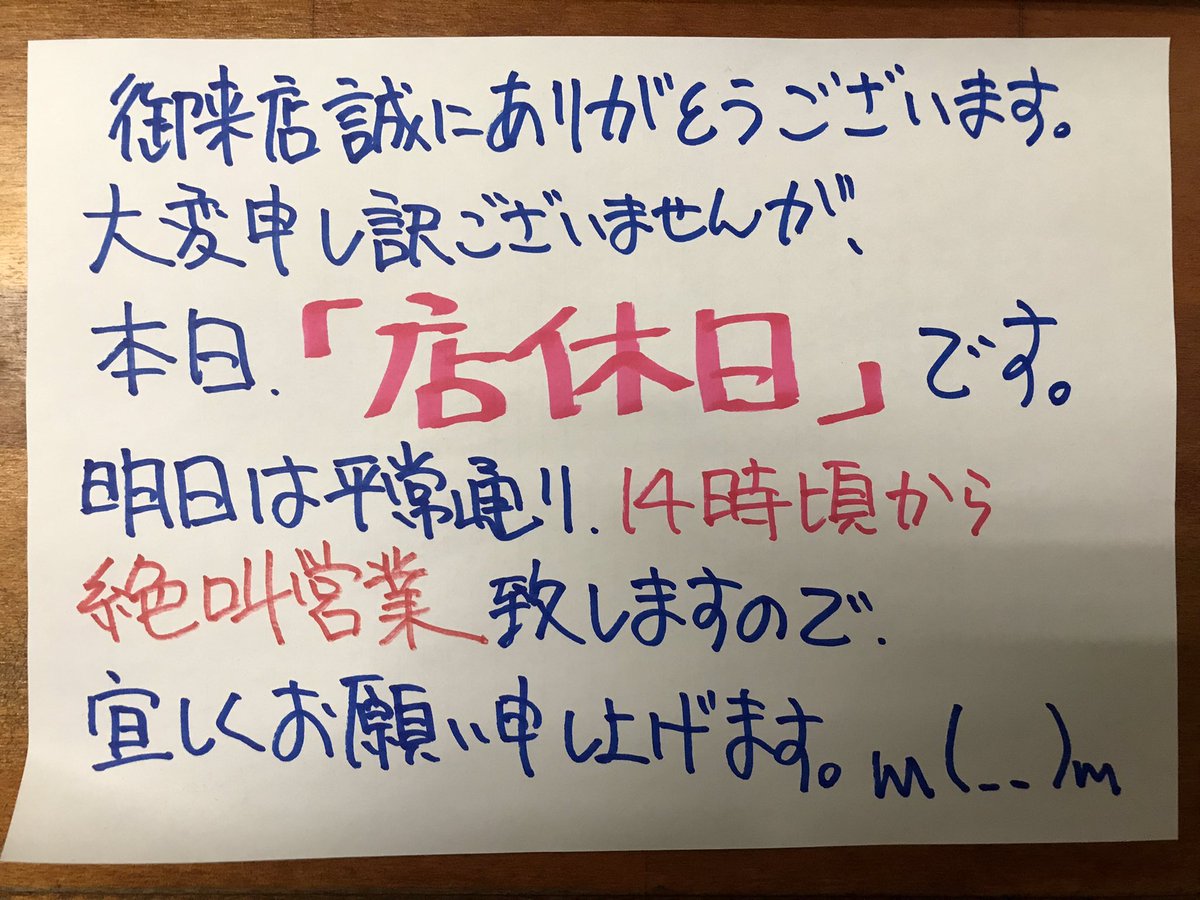 御来店誠にありがとうございます。
大変申し訳ございませんが、
本日、「店休日」です。
明日は平常通り、14時頃から
絶叫営業致しますので、
宜しくお願い申し上げます。m(__)m